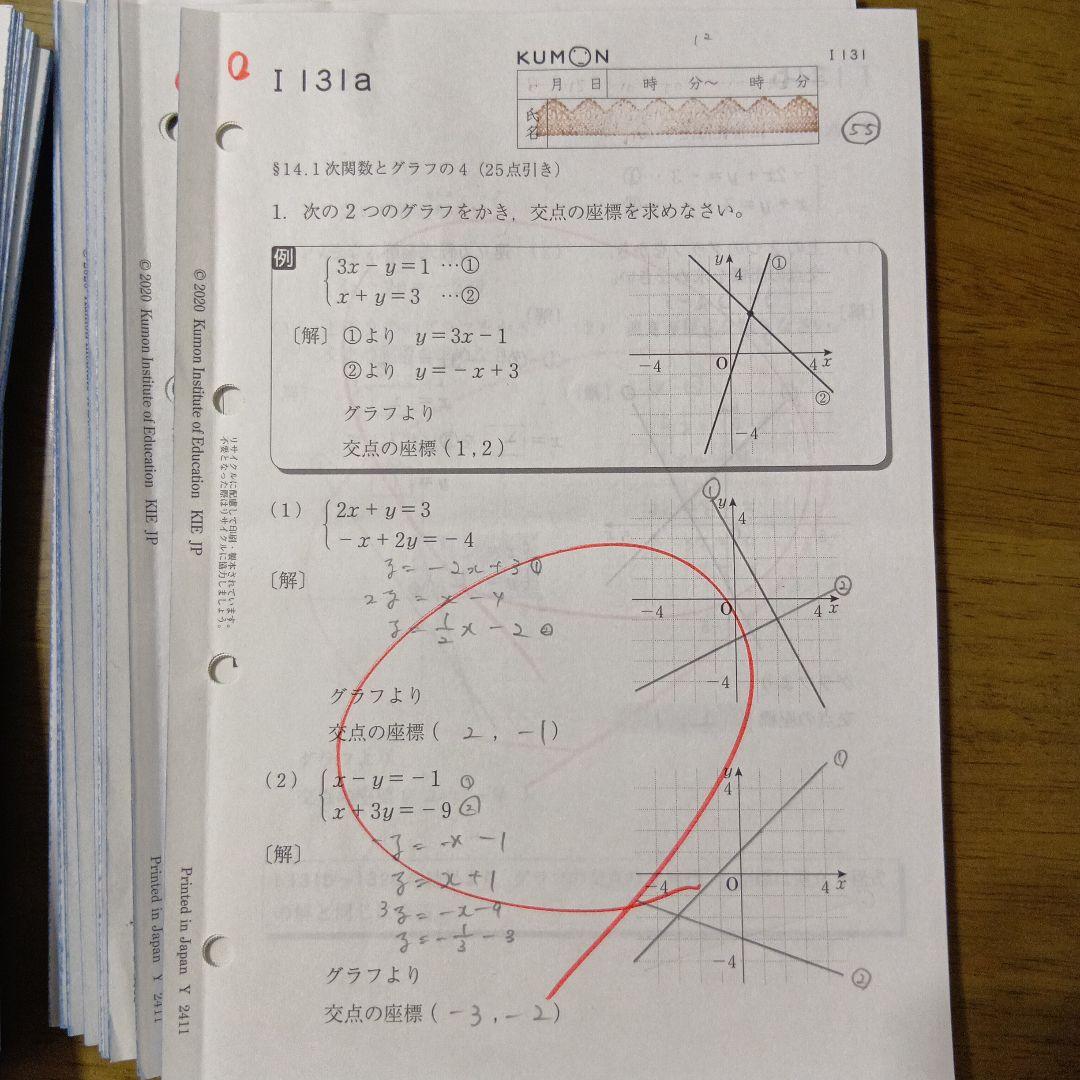 KUMON
1²
I 131
I 131a
月 日 時 分〜 時 分
氏名
55
§14.1次関数とグラフの4（25点引き）
1. 次の2つのグラフをかき，交点の座標を求めなさい。
例
3x－y＝1 …①
x＋y＝3 …②
〔解〕 ①より y＝3x－1
②より y＝－x＋3
グラフより
交点の座標（1，2）
y
4
①
－4
O
4
x
②
－4
（1）
2x＋y＝3
－x＋2y＝－4
〔解〕
y＝－2x＋3 ①
2y＝x－4
y＝1/2x－2 ②
グラフより
交点の座標（ 2 ，－1）
①
y
4
②
－4
O
4
x
－4
（2）
x－y＝－1 ①
x＋3y＝－9 ②
〔解〕
－y＝－x－1
y＝x＋1
3y＝－x－9
y＝－1/3－3
グラフより
交点の座標（－3，－2）
①
y
4
－4
O
4
x
－4
②
リサイクルに配慮して印刷・製本されています。
不要となった際はリサイクルに協力しましょう。
© 2020 Kumon Institute of Education KIE JP
Printed in Japan Y 2411
© 2020 Kumon Institute of Education KIE JP
Printed in Japan Y 2411